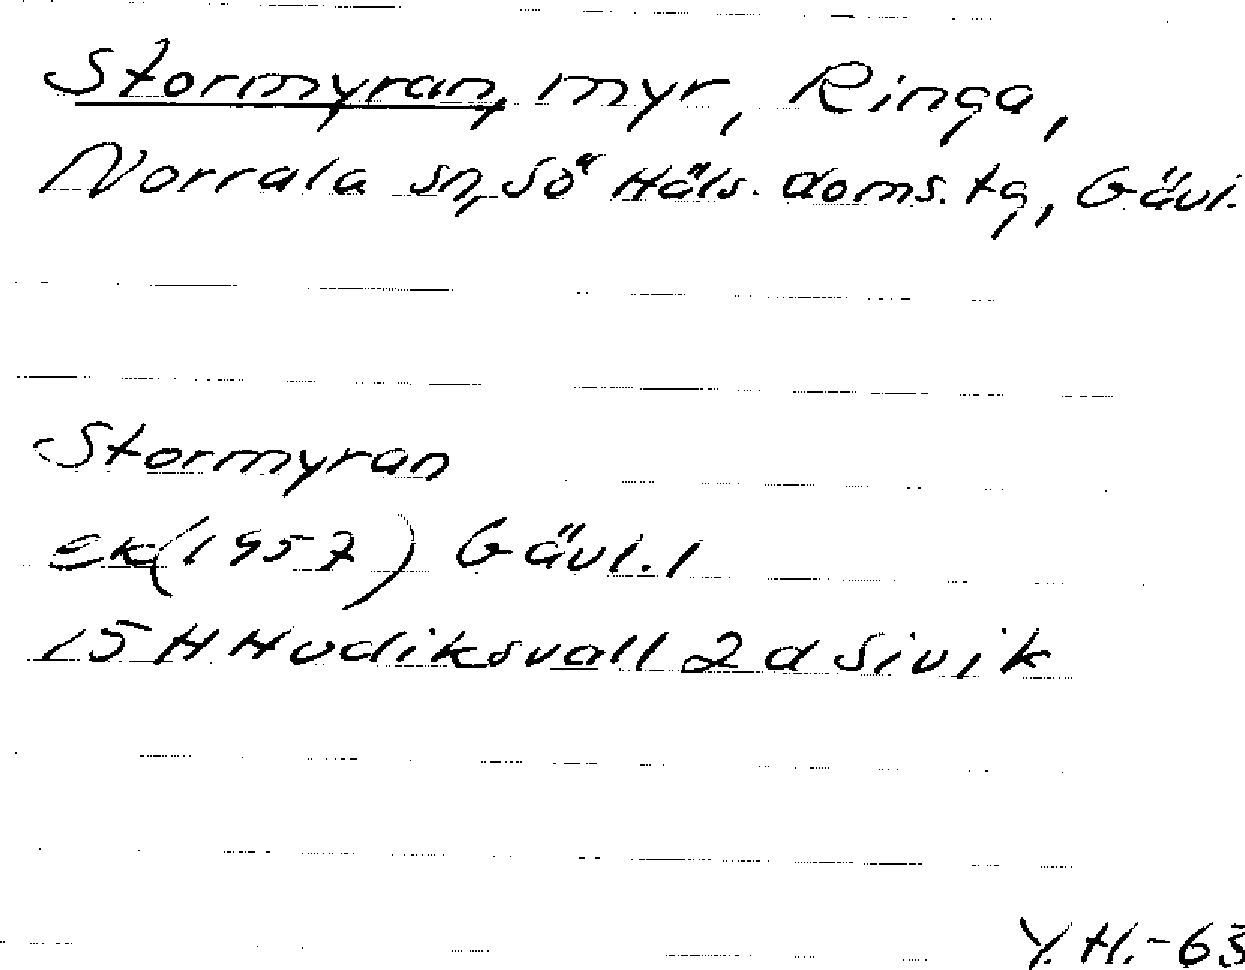 Stormyran, myr, Ringa,
Norrala sn, Sö Häls. doms. tg, Gävl.
Stormyran
ek (1957) Gävl. l
15 H Hudiksvall 2 d Sivik
Y. H. -63